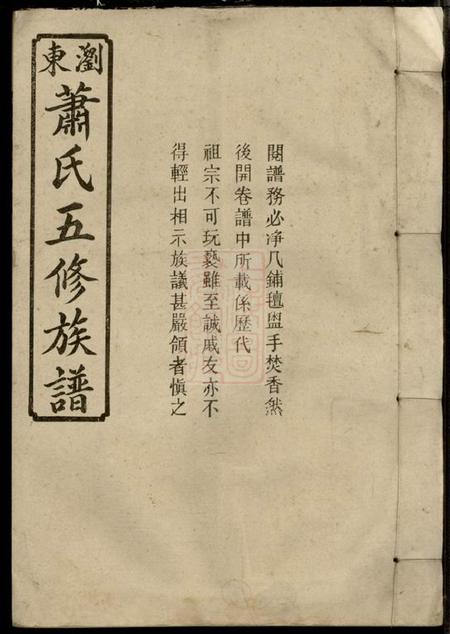 瀏東
蕭氏五修族譜
閱譜務必凈几鋪氊盥手焚香然
後開卷譜中所載係歷代
祖宗不可玩褻雖至誠戚友亦不
得輕出相示族議甚嚴領者慎之